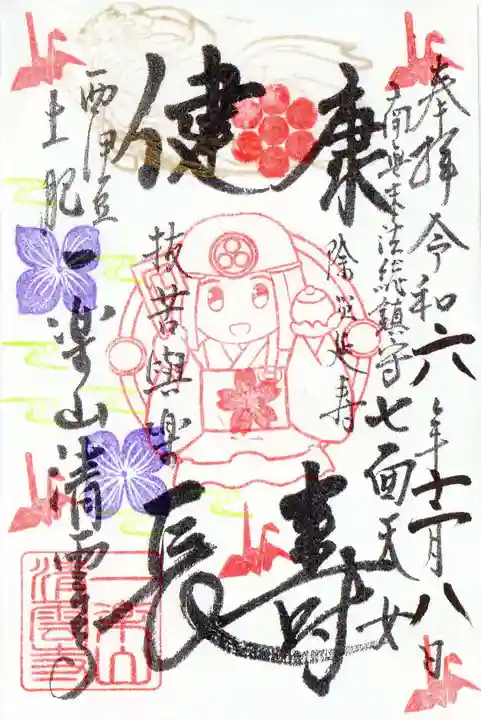 奉拝 令和六年十一月八日
南無妙法総鎮守七面天女
健康
除災延寿
長寿
抜苦與楽
西伊豆
土肥 一楽山清雲寺
一楽山
清雲寺